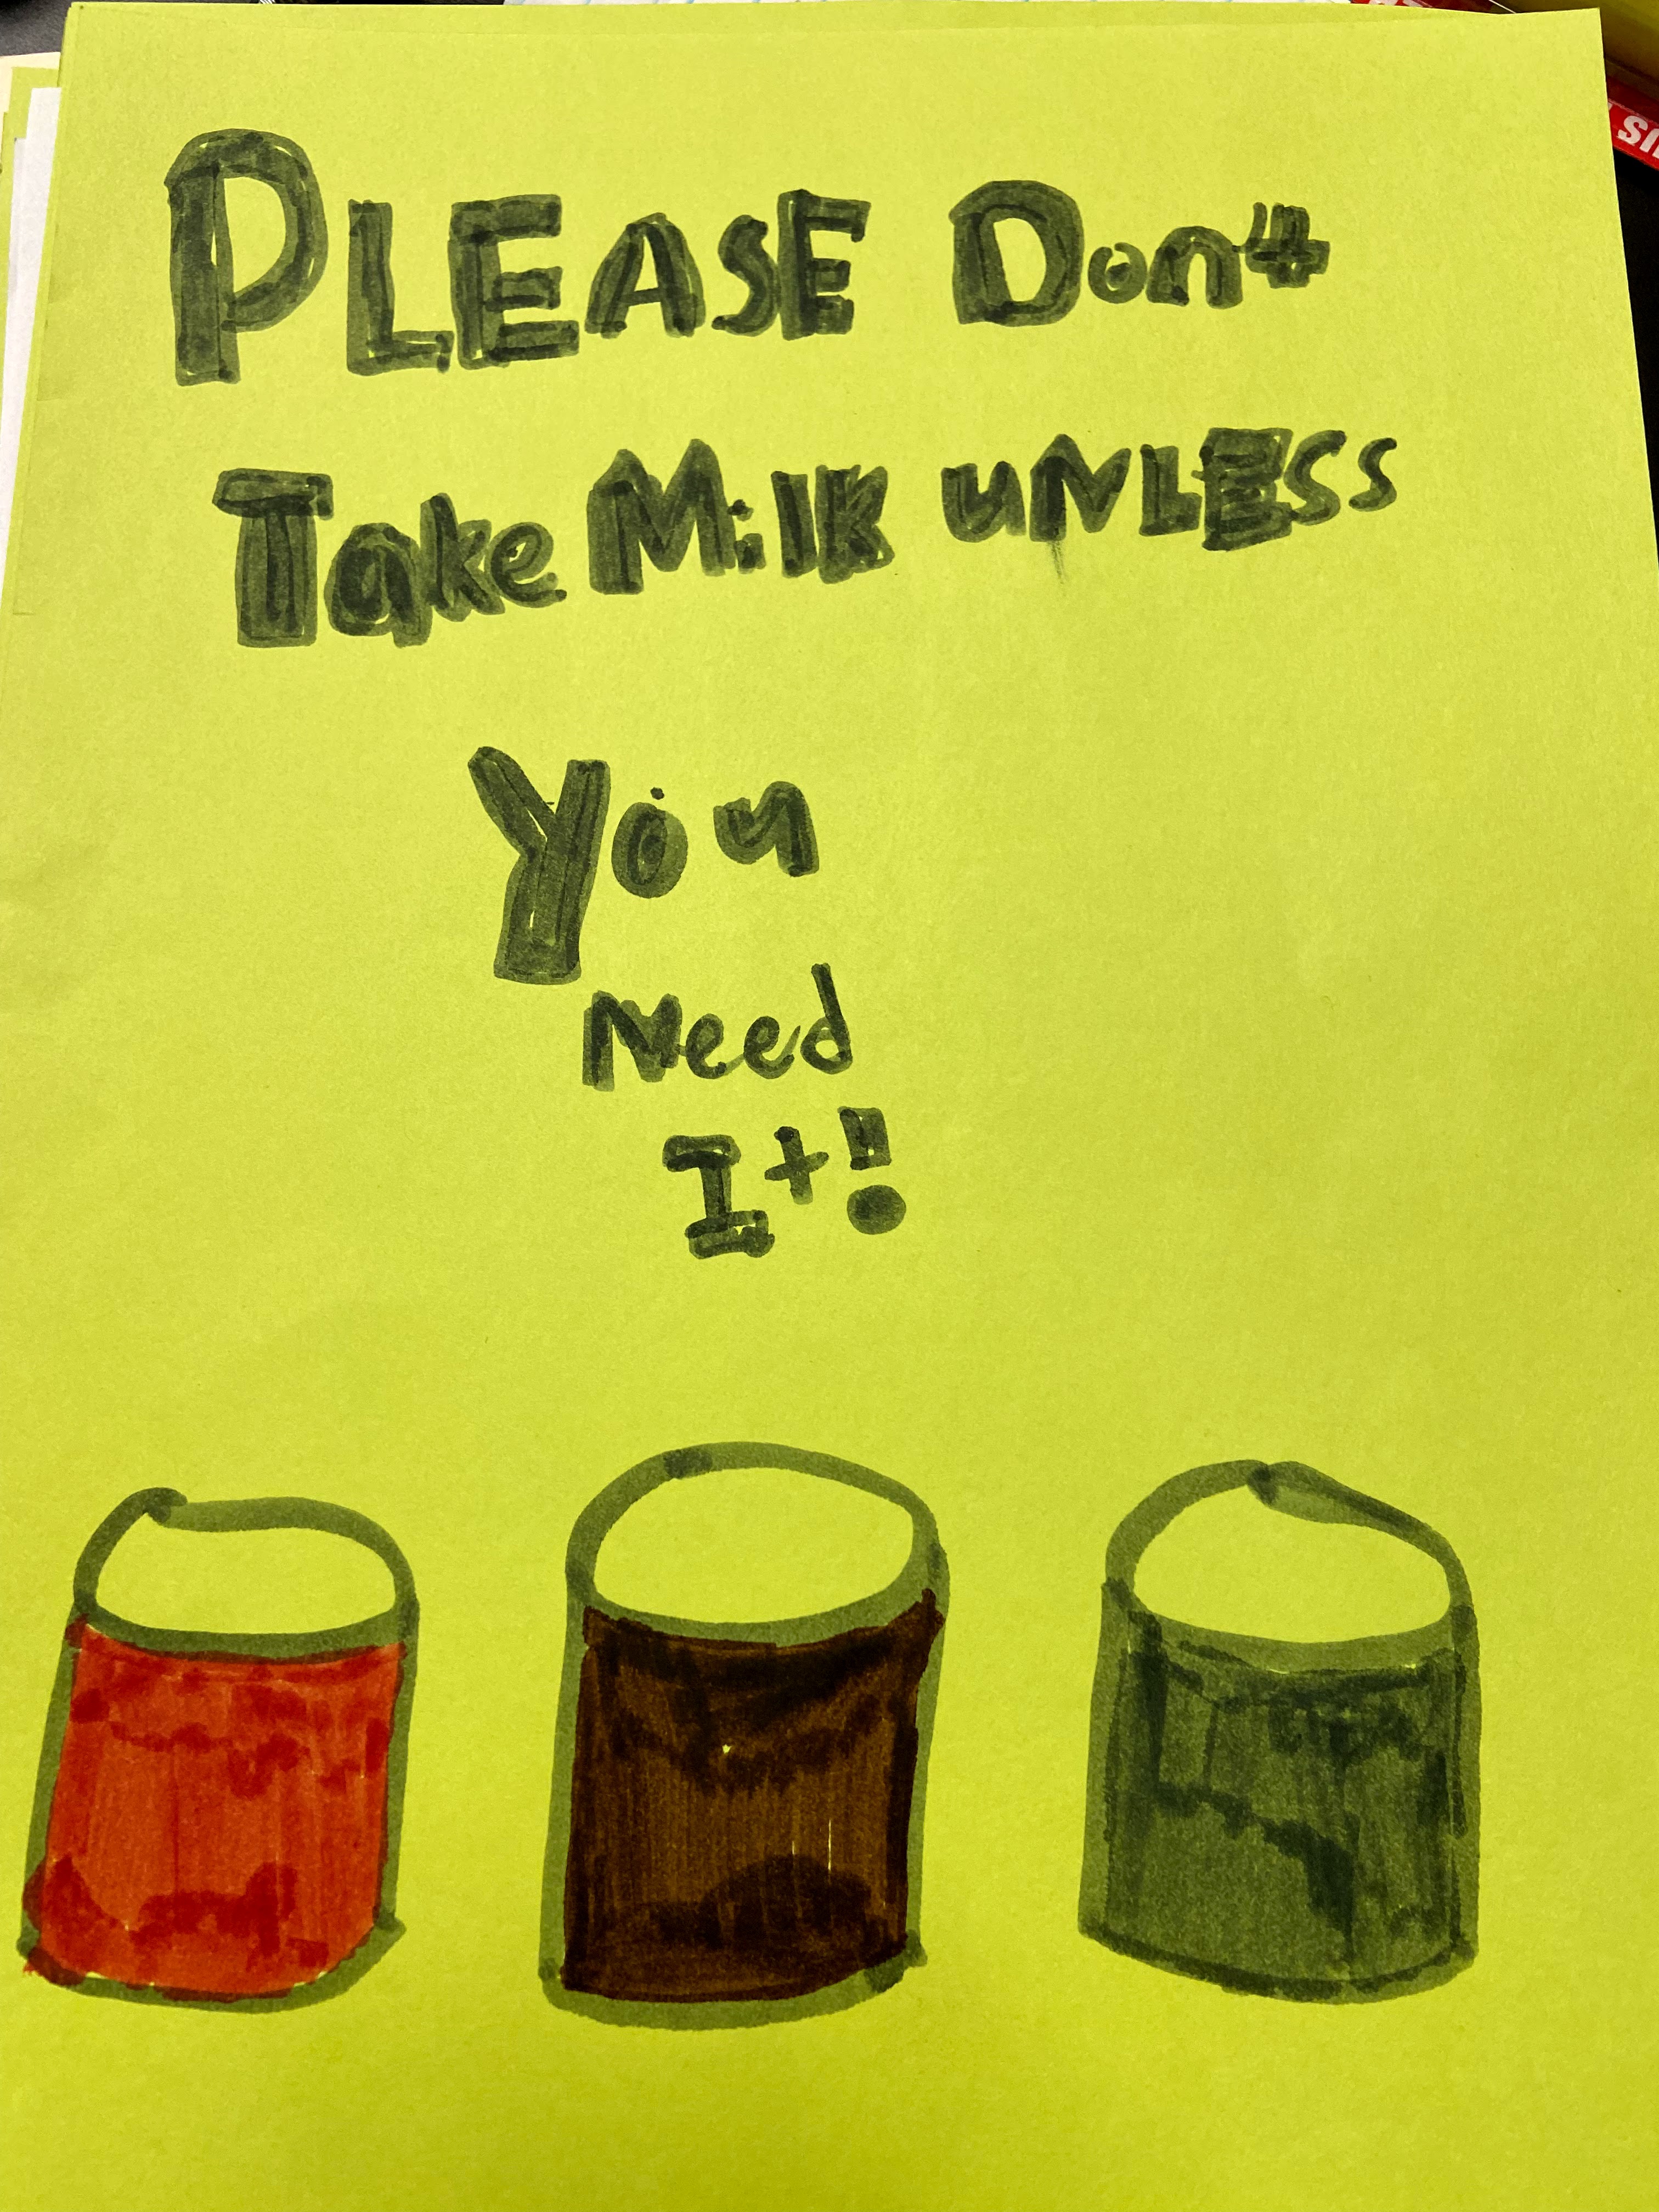 PLEASE Don't
Take Milk UNLESS
You
Need
It!